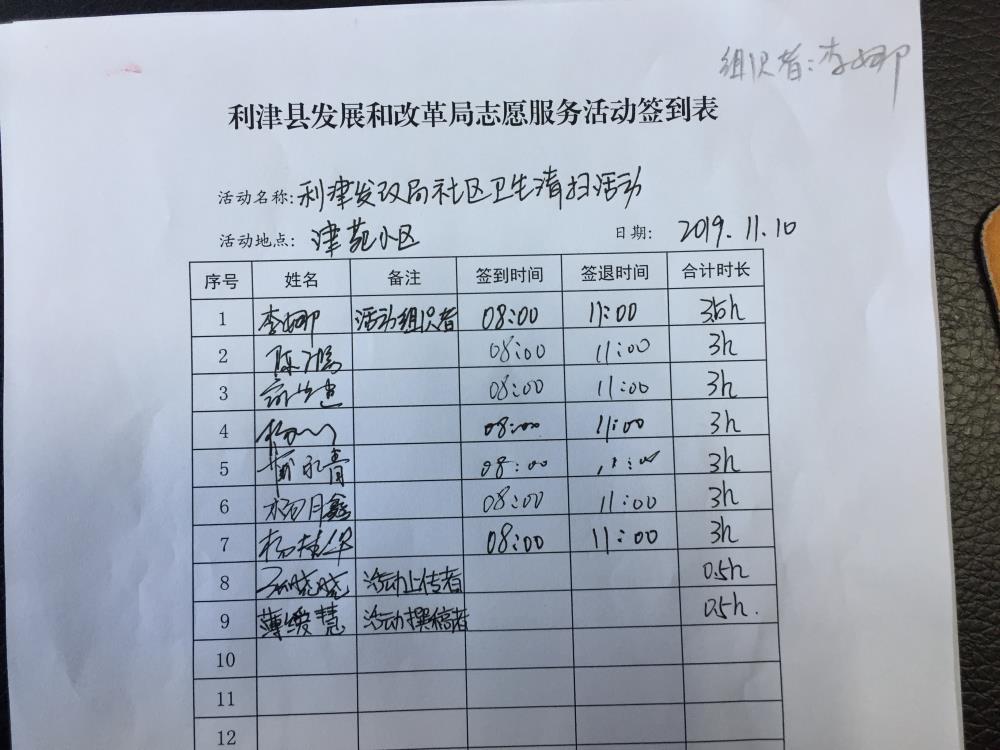 组识者:李娜
利津县发展和改革局志愿服务活动签到表
活动名称:利津发改局社区卫生清扫活动
活动地点: 津苑小区 日期: 2019.11.10
序号 姓名 备注 签到时间 签退时间 合计时长
1 李娜 活动组识者 08:00 11:00 3.5h
2 陈 08:00 11:00 3h
3 08:00 11:00 3h
4 杨 08:00 11:00 3h
5 08:00 11:00 3h
6 杨月鑫 08:00 11:00 3h
7 杨 华 08:00 11:00 3h
8 孙晓晓 活动上传者 0.5h
9 薄缓慧 活动撰稿者 0.5h.
10
11
12